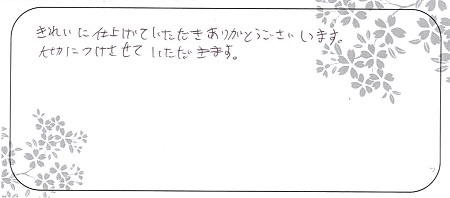 きれいに仕上げていただきありがとうございます。
大切につけさせていただきます。